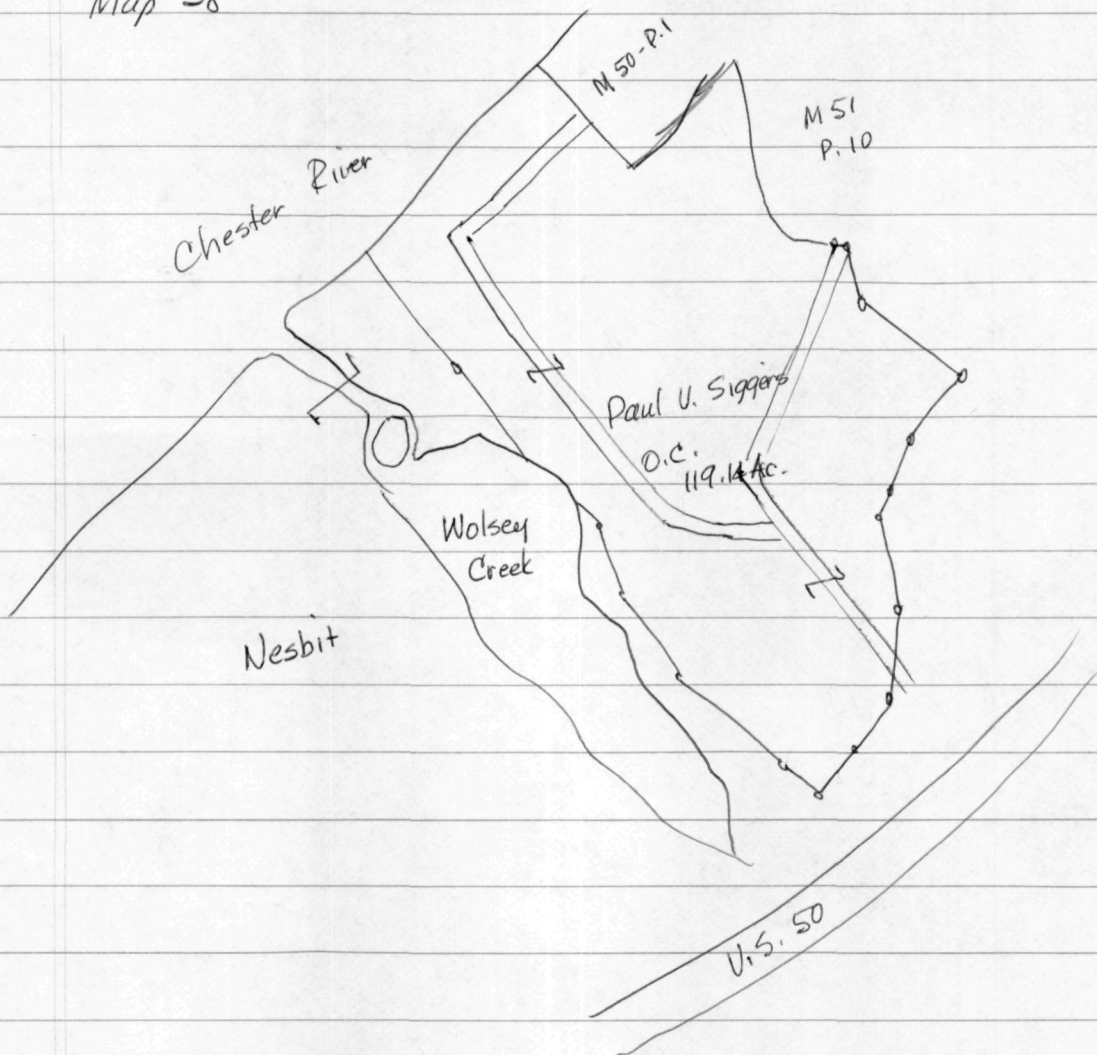 Map
M 50-P.1
M 51
P. 10
Chester River
Paul U. Siggers
O.C.
119.14 Ac.
Wolsey
Creek
Nesbit
U.S. 50